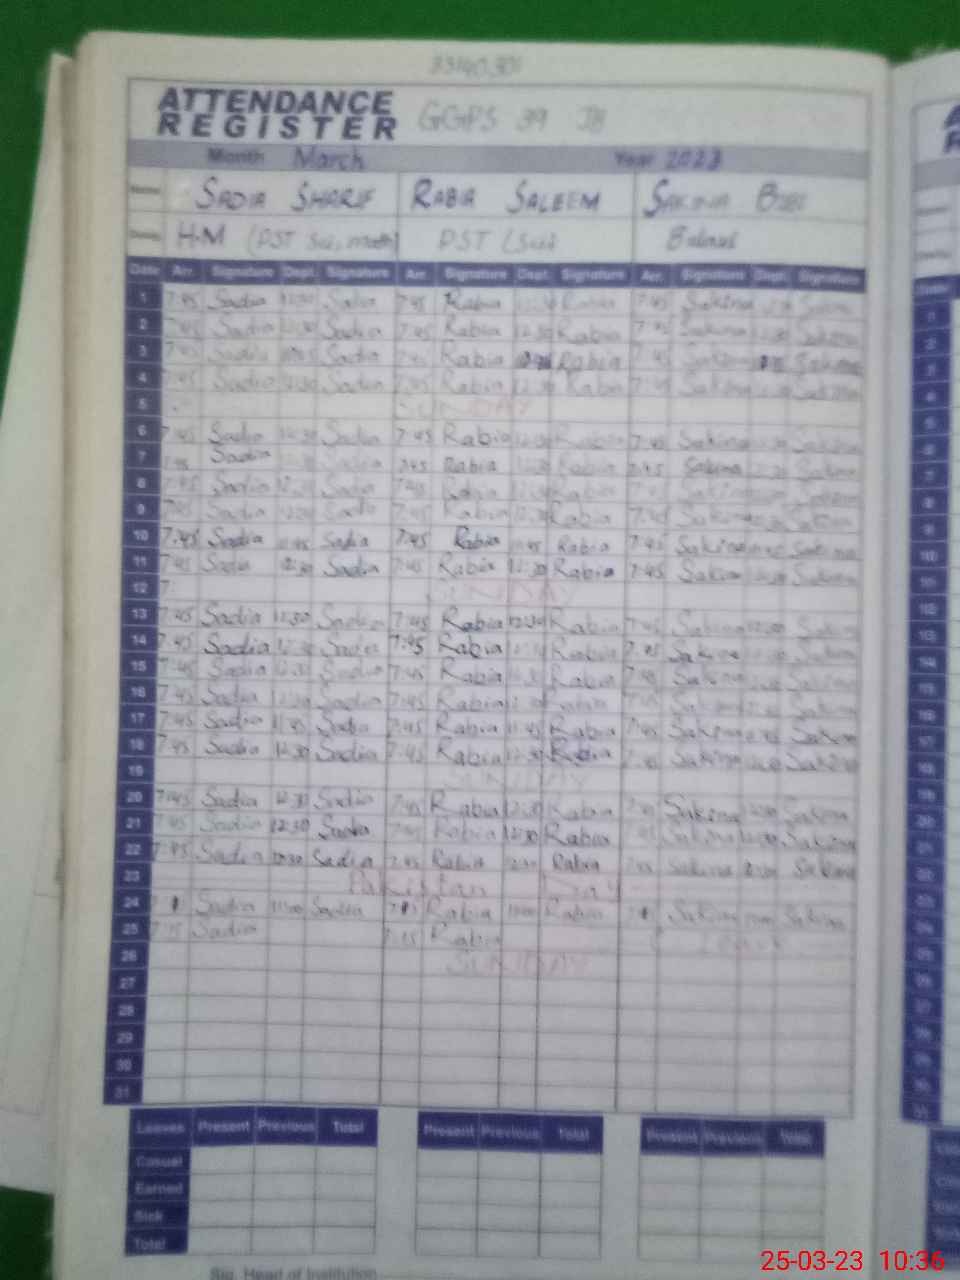 33140301
ATTENDANCE
REGISTER GGPS 39 JB
Month March Year 2023
Name SADIA SHARIF RABIA SALEEM SAKINA BIBI
H.M (PST Sci, math) PST (Sci)
Date Arr. Signature Dept. Signature Arr. Signature Dept. Signature Arr. Signature Dept. Signature
1 7:45 Sadia 12:30 Sadia 7:45 Rabia 12:30 Rabia 7:45 Sakina Sakina
2 7:45 Sadia 12:30 Sadia 7:45 Rabia 12:30 Rabia 7:45 Sakina 12:30 Sakina
3 7:45 Sadia Sadia 7:45 Rabia Rabia 7:45 Sakina Sakina
4 7:45 Sadia 12:30 Sadia 7:45 Rabia 12:30 Rabia 7:45 Sakina Sakina
5 SUNDAY
6 7:45 Sadia 12:30 Sadia 7:45 Rabia 12:30 Rabia 7:45 Sakina Sakina
7 7:45 Sadia Sadia 7:45 Rabia Rabia 7:45 Sakina Sakina
8 7:45 Sadia 12:30 Sadia 7:45 Rabia 12:30 Rabia 7:45 Sakina Sakina
9 7:45 Sadia 12:30 Sadia 7:45 Rabia 12:30 Rabia 7:45 Sakina Sakina
10 7:45 Sadia 11:45 Sadia 7:45 Rabia 11:45 Rabia 7:45 Sakina Sakina
11 7:45 Sadia 12:30 Sadia 7:45 Rabia 12:30 Rabia 7:45 Sakina 12:30 Sakina
12 7: SUNDAY
13 7:45 Sadia 12:30 Sadia 7:45 Rabia 12:30 Rabia 7:45 Sakina 12:30 Sakina
14 7:45 Sadia 12:30 Sadia 7:45 Rabia 12:30 Rabia 7:45 Sakina Sakina
15 7:45 Sadia 12:30 Sadia 7:45 Rabia 12:30 Rabia 7:45 Sakina Sakina
16 7:45 Sadia 12:30 Sadia 7:45 Rabia Rabia Sakina Sakina
17 7:45 Sadia 11:45 Sadia 7:45 Rabia 11:45 Rabia 7:45 Sakina Sakina
18 7:45 Sadia 12:30 Sadia 7:45 Rabia 12:30 Rabia 7:45 Sakina Sakina
19 SUNDAY
20 7:45 Sadia 12:30 Sadia 7:45 Rabia 12:30 Rabia 7:45 Sakina 12:30 Sakina
21 7:45 Sadia 12:30 Sadia 7:45 Rabia 12:30 Rabia 7:45 Sakina 12:30 Sakina
22 7:45 Sadia 12:30 Sadia 7:45 Rabia 12:30 Rabia 7:45 Sakina 12:30 Sakina
23 Pakistan Day
24 Sadia Sadia Rabia Rabia Sakina Sakina
25 7:15 Sadia 7:15 Rabia Leave
26 SUNDAY
27
28
29
30
31
Leaves Present Previous Total Present Previous Total Present Previous Total
Casual
Earned
Sick
Total
Sig. Head of Institution
25-03-23 10:36